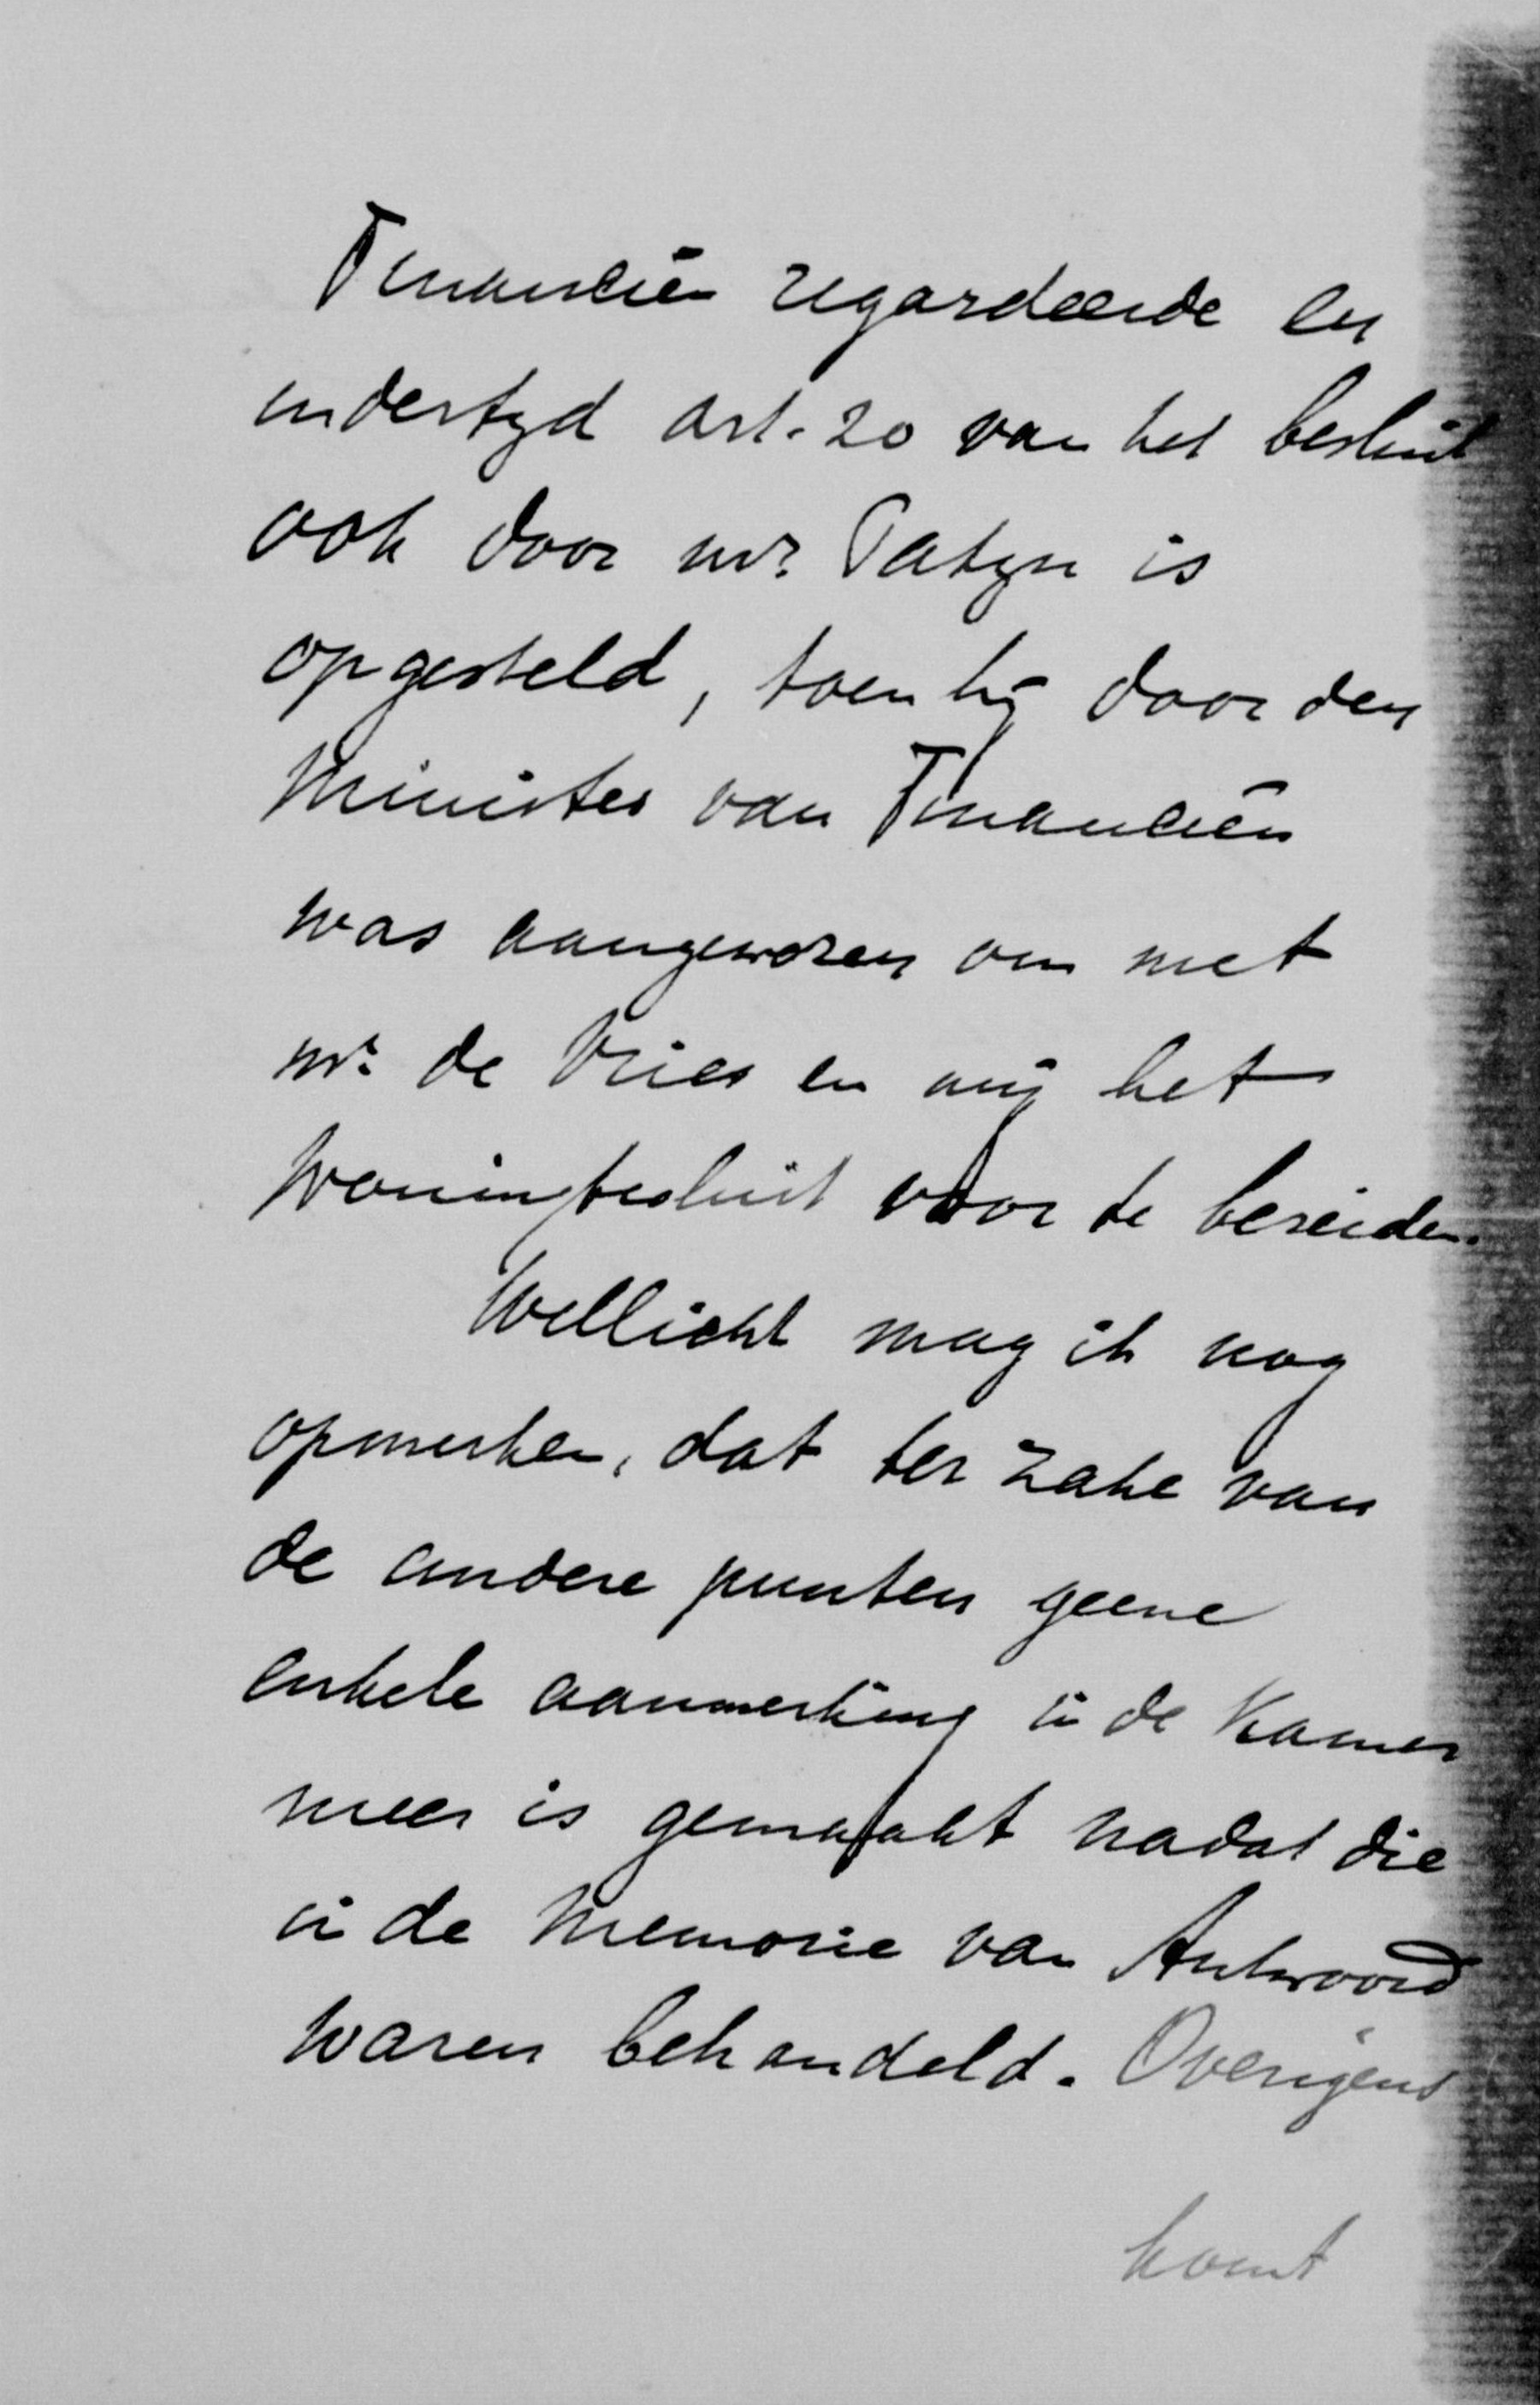 Financiën regardeerde en
indertijd art. 20 van het besluit
ook door mr. Patijn is
opgesteld, toen hij door den
Minister van Financiën
was aangewezen om met
mr. de Vries en mij het
Woningbesluit voor te bereiden.
Wellicht mag ik nog
opmerken, dat ter zake van
de andere punten geene
enkele aanmerking in de Kamer
meer is gemaakt nadat die
in de Memorie van Antwoord
waren behandeld. Overigens
komt